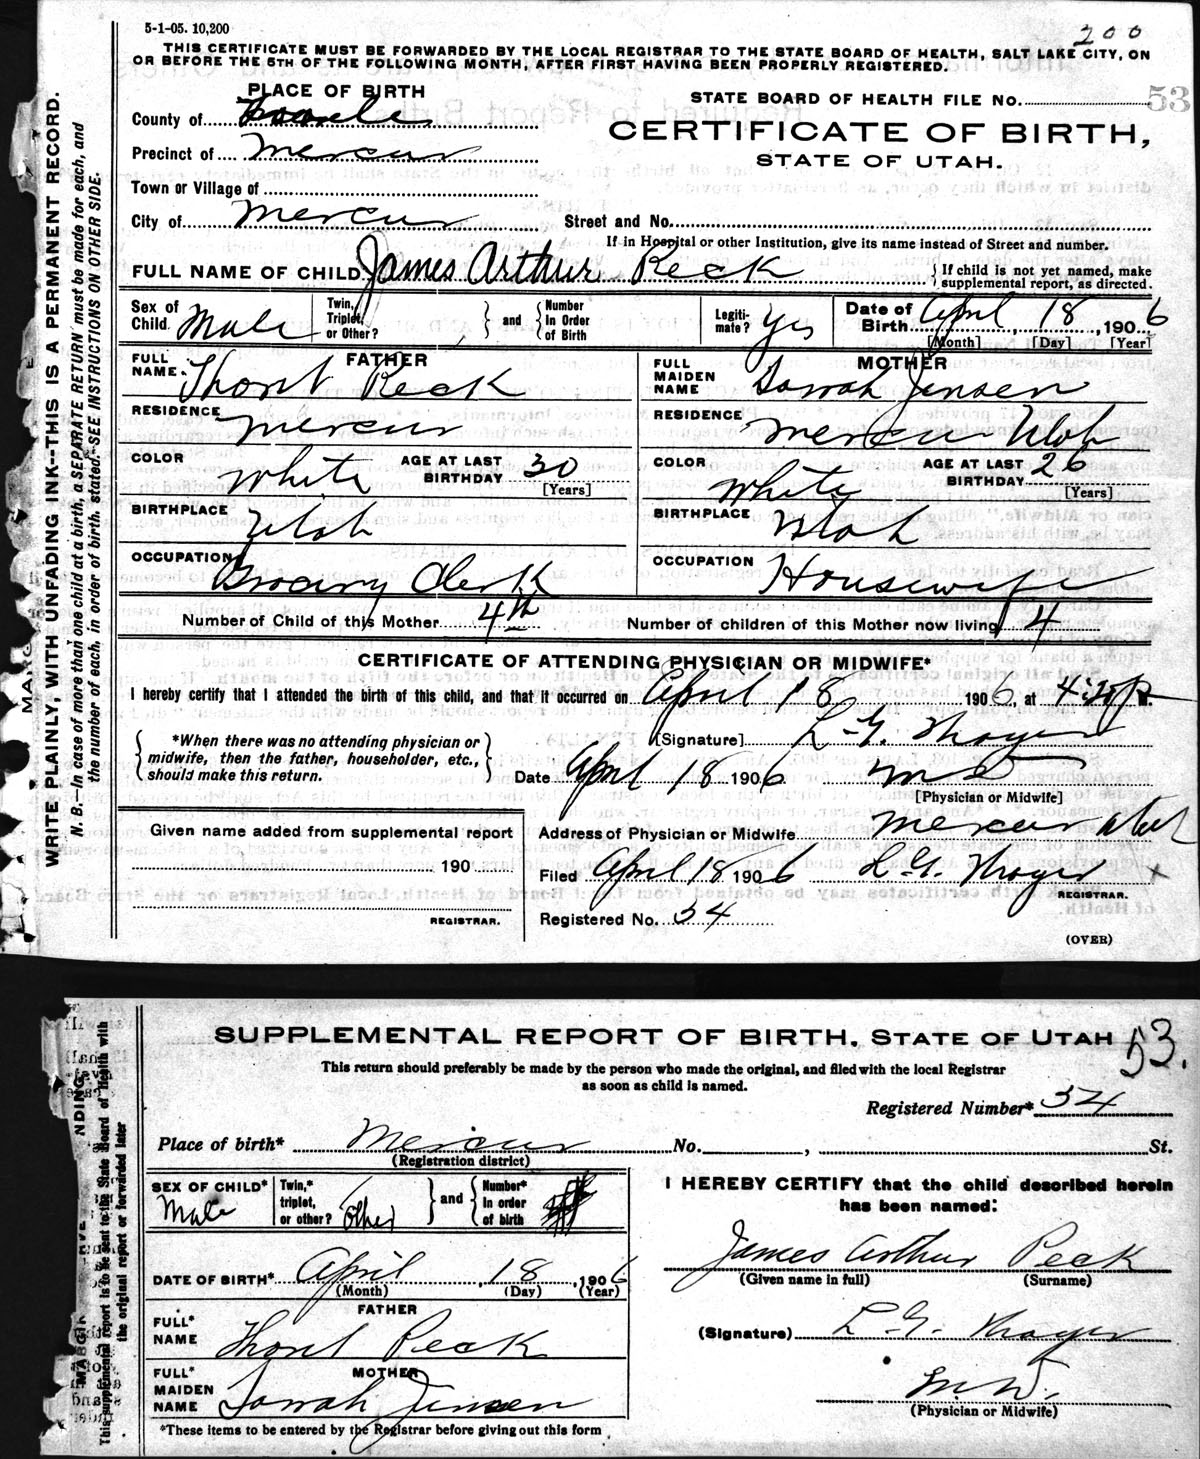 5-1-05. 10,200
200
THIS CERTIFICATE MUST BE FORWARDED BY THE LOCAL REGISTRAR TO THE STATE BOARD OF HEALTH, SALT LAKE CITY, ON
OR BEFORE THE 5TH OF THE FOLLOWING MONTH, AFTER FIRST HAVING BEEN PROPERLY REGISTERED.
WRITE PLAINLY, WITH UNFADING INK--THIS IS A PERMANENT RECORD.
N. B.—In case of more than one child at a birth, a SEPARATE RETURN must be made for each, and
the number of each, in order of birth, stated. SEE INSTRUCTIONS ON OTHER SIDE.
PLACE OF BIRTH
County of Tooele
Precinct of Mercur
Town or Village of
City of Mercur
STATE BOARD OF HEALTH FILE NO. 53
CERTIFICATE OF BIRTH,
STATE OF UTAH.
Street and No.
If in Hospital or other Institution, give its name instead of Street and number.
FULL NAME OF CHILD James Arthur Peck
If child is not yet named, make
supplemental report, as directed.
Sex of Child. Male
Twin, Triplet, or Other? and Number In Order of Birth
Legiti-mate? Yes
Date of Birth April 18, 1906
[Month] [Day] [Year]
FATHER
FULL NAME. Thont Peck
RESIDENCE Mercur
COLOR White AGE AT LAST BIRTHDAY 30
[Years]
BIRTHPLACE Utah
OCCUPATION Grocery Clerk
MOTHER
FULL MAIDEN NAME Sarah Jensen
RESIDENCE Mercur Utah
COLOR White AGE AT LAST BIRTHDAY 26
[Years]
BIRTHPLACE Utah
OCCUPATION Housewife
Number of Child of this Mother 4th Number of children of this Mother now living 4
CERTIFICATE OF ATTENDING PHYSICIAN OR MIDWIFE*
I hereby certify that I attended the birth of this child, and that it occurred on April 18 1906, at M.
*When there was no attending physician or
midwife, then the father, householder, etc.,
should make this return.
[Signature] L. G. Thayer
Date April 18 1906 M D
[Physician or Midwife]
Given name added from supplemental report
190
REGISTRAR.
Address of Physician or Midwife Mercur Utah
Filed April 18 1906 L. G. Thayer
REGISTRAR.
Registered No. 34
(OVER)
SUPPLEMENTAL REPORT OF BIRTH, STATE OF UTAH 53.
This return should preferably be made by the person who made the original, and filed with the local Registrar
as soon as child is named.
Registered Number* 34
Place of birth* Mercur No. , St.
(Registration district)
This supplemental report is to be sent to the State Board of Health with
the original report or forwarded later
SEX OF CHILD* Male
Twin,* triplet, or other? Other and Number* in order of birth
DATE OF BIRTH* April, 18, 1906
(Month) (Day) (Year)
FATHER
FULL* NAME Thont Peck
MOTHER
FULL* MAIDEN NAME Sarah Jensen
*These items to be entered by the Registrar before giving out this form
I HEREBY CERTIFY that the child described herein
has been named:
James Arthur Peck
(Given name in full) (Surname)
(Signature) L. G. Thayer
M.D.
(Physician or Midwife)